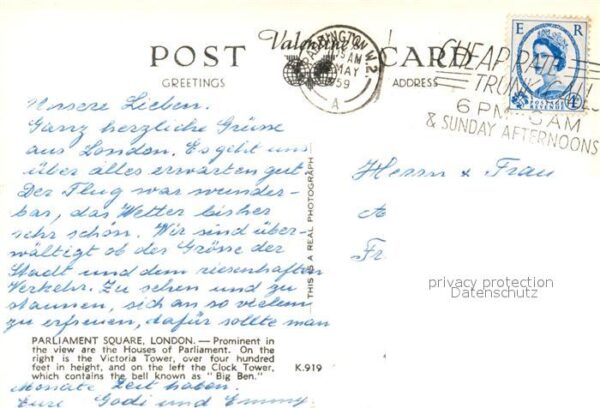 POST Valentine's CARD
GREETINGS
ADDRESS
PADDINGTON W.2
AM
MAY
1959
A
CHEAP RATE
TRUNK CALL
6 PM-6AM
& SUNDAY AFTERNOONS
E R
POSTAGE
REVENUE
Unsere Lieben.
Ganz herzliche Grüsse
aus London. Es geht uns
über alles erwarten gut.
Der Flug war wunder-
bar, das Wetter bisher
sehr schön. Wir sind über-
wältigt ob der Grösse der
Stadt und dem riesenhaften
Verkehr. Zu sehen und zu
staunen, sich an so vielem
zu erfreuen, dafür sollte man
PARLIAMENT SQUARE, LONDON. — Prominent in
the view are the Houses of Parliament. On the
right is the Victoria Tower, over four hundred
feet in height, and on the left the Clock Tower,
which contains the bell known as "Big Ben."
K.919
Monate Zeit haben.
Eure Godi und Emmy.
THIS IS A REAL PHOTOGRAPH
Herrn & Frau
A
Fr
privacy protection
Datenschutz